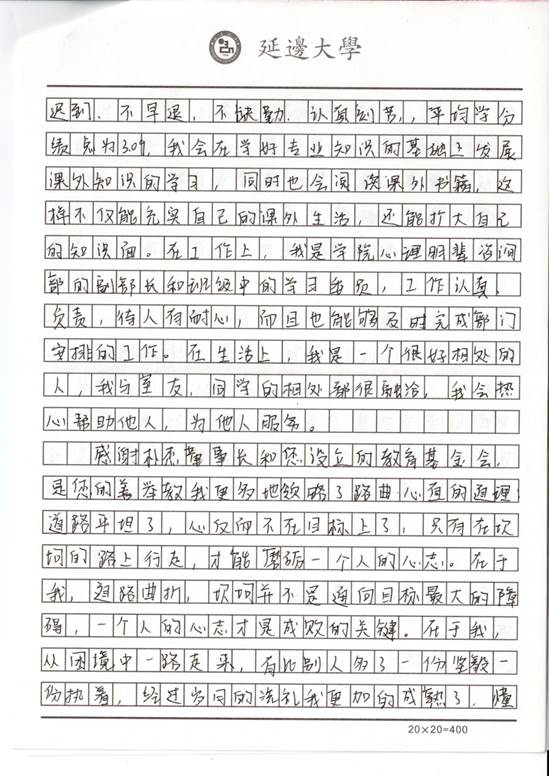 延邊大學
迟到、不早退,不缺勤.认真刻苦,,平均学分
绩点为3.09,我会在学好专业知识的基础上发展
课外知识的学习,同时也会阅读课外书籍,这
样不仅能充实自己的课外生活,还能扩大自己
的知识面。在工作上,我是学院心理朋辈咨询
部的副部长和班级中的学习委员,工作认真、
负责,待人有耐心,而且也能够及时完成部门
安排的工作。在生活上,我是一个很好相处的
人,我与室友,同学的相处都很融洽,我会热
心帮助他人,为他人服务。
感谢朴杰董事长和您设立的教育基金会,
是您的善举教我更多地领略了路曲心直的道理
道路平坦了,心反而不在目标上了,只有在坎
坷的路上行走,才能磨砺一个人的心志。在于
我,道路曲折,坎坷并不是迈向目标最大的障
碍,一个人的心志才是成败的关键。在于我,
从困境中一路走来,有比别人多了一份坚毅一
份执着,经过时间的洗礼我更加的成熟了,懂
20×20=400